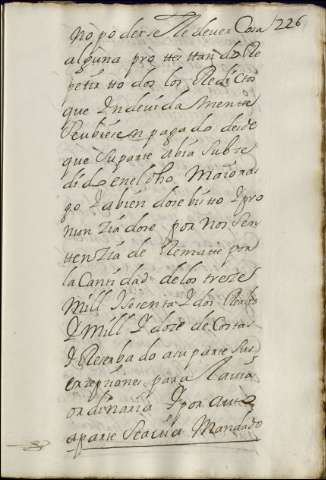 no poderse lle dever Cosa 226
alguna protestando Re
petir todos los Redictos
que Yndevida mente
se ubiesen pagado desde
que su parte abia subce
dido en el dho Mayoraz
go Y abiendose bisto Y pro
nunziadose por Nos sen
tenzia de Remate por
la Cantidad de los treze
Mill Y Y dos Reales
Y Mill Y doze de Costas
Y Reserbado a su parte sus
exepziones para la via
ordinaria Y por auto
aparte se avia Mandado